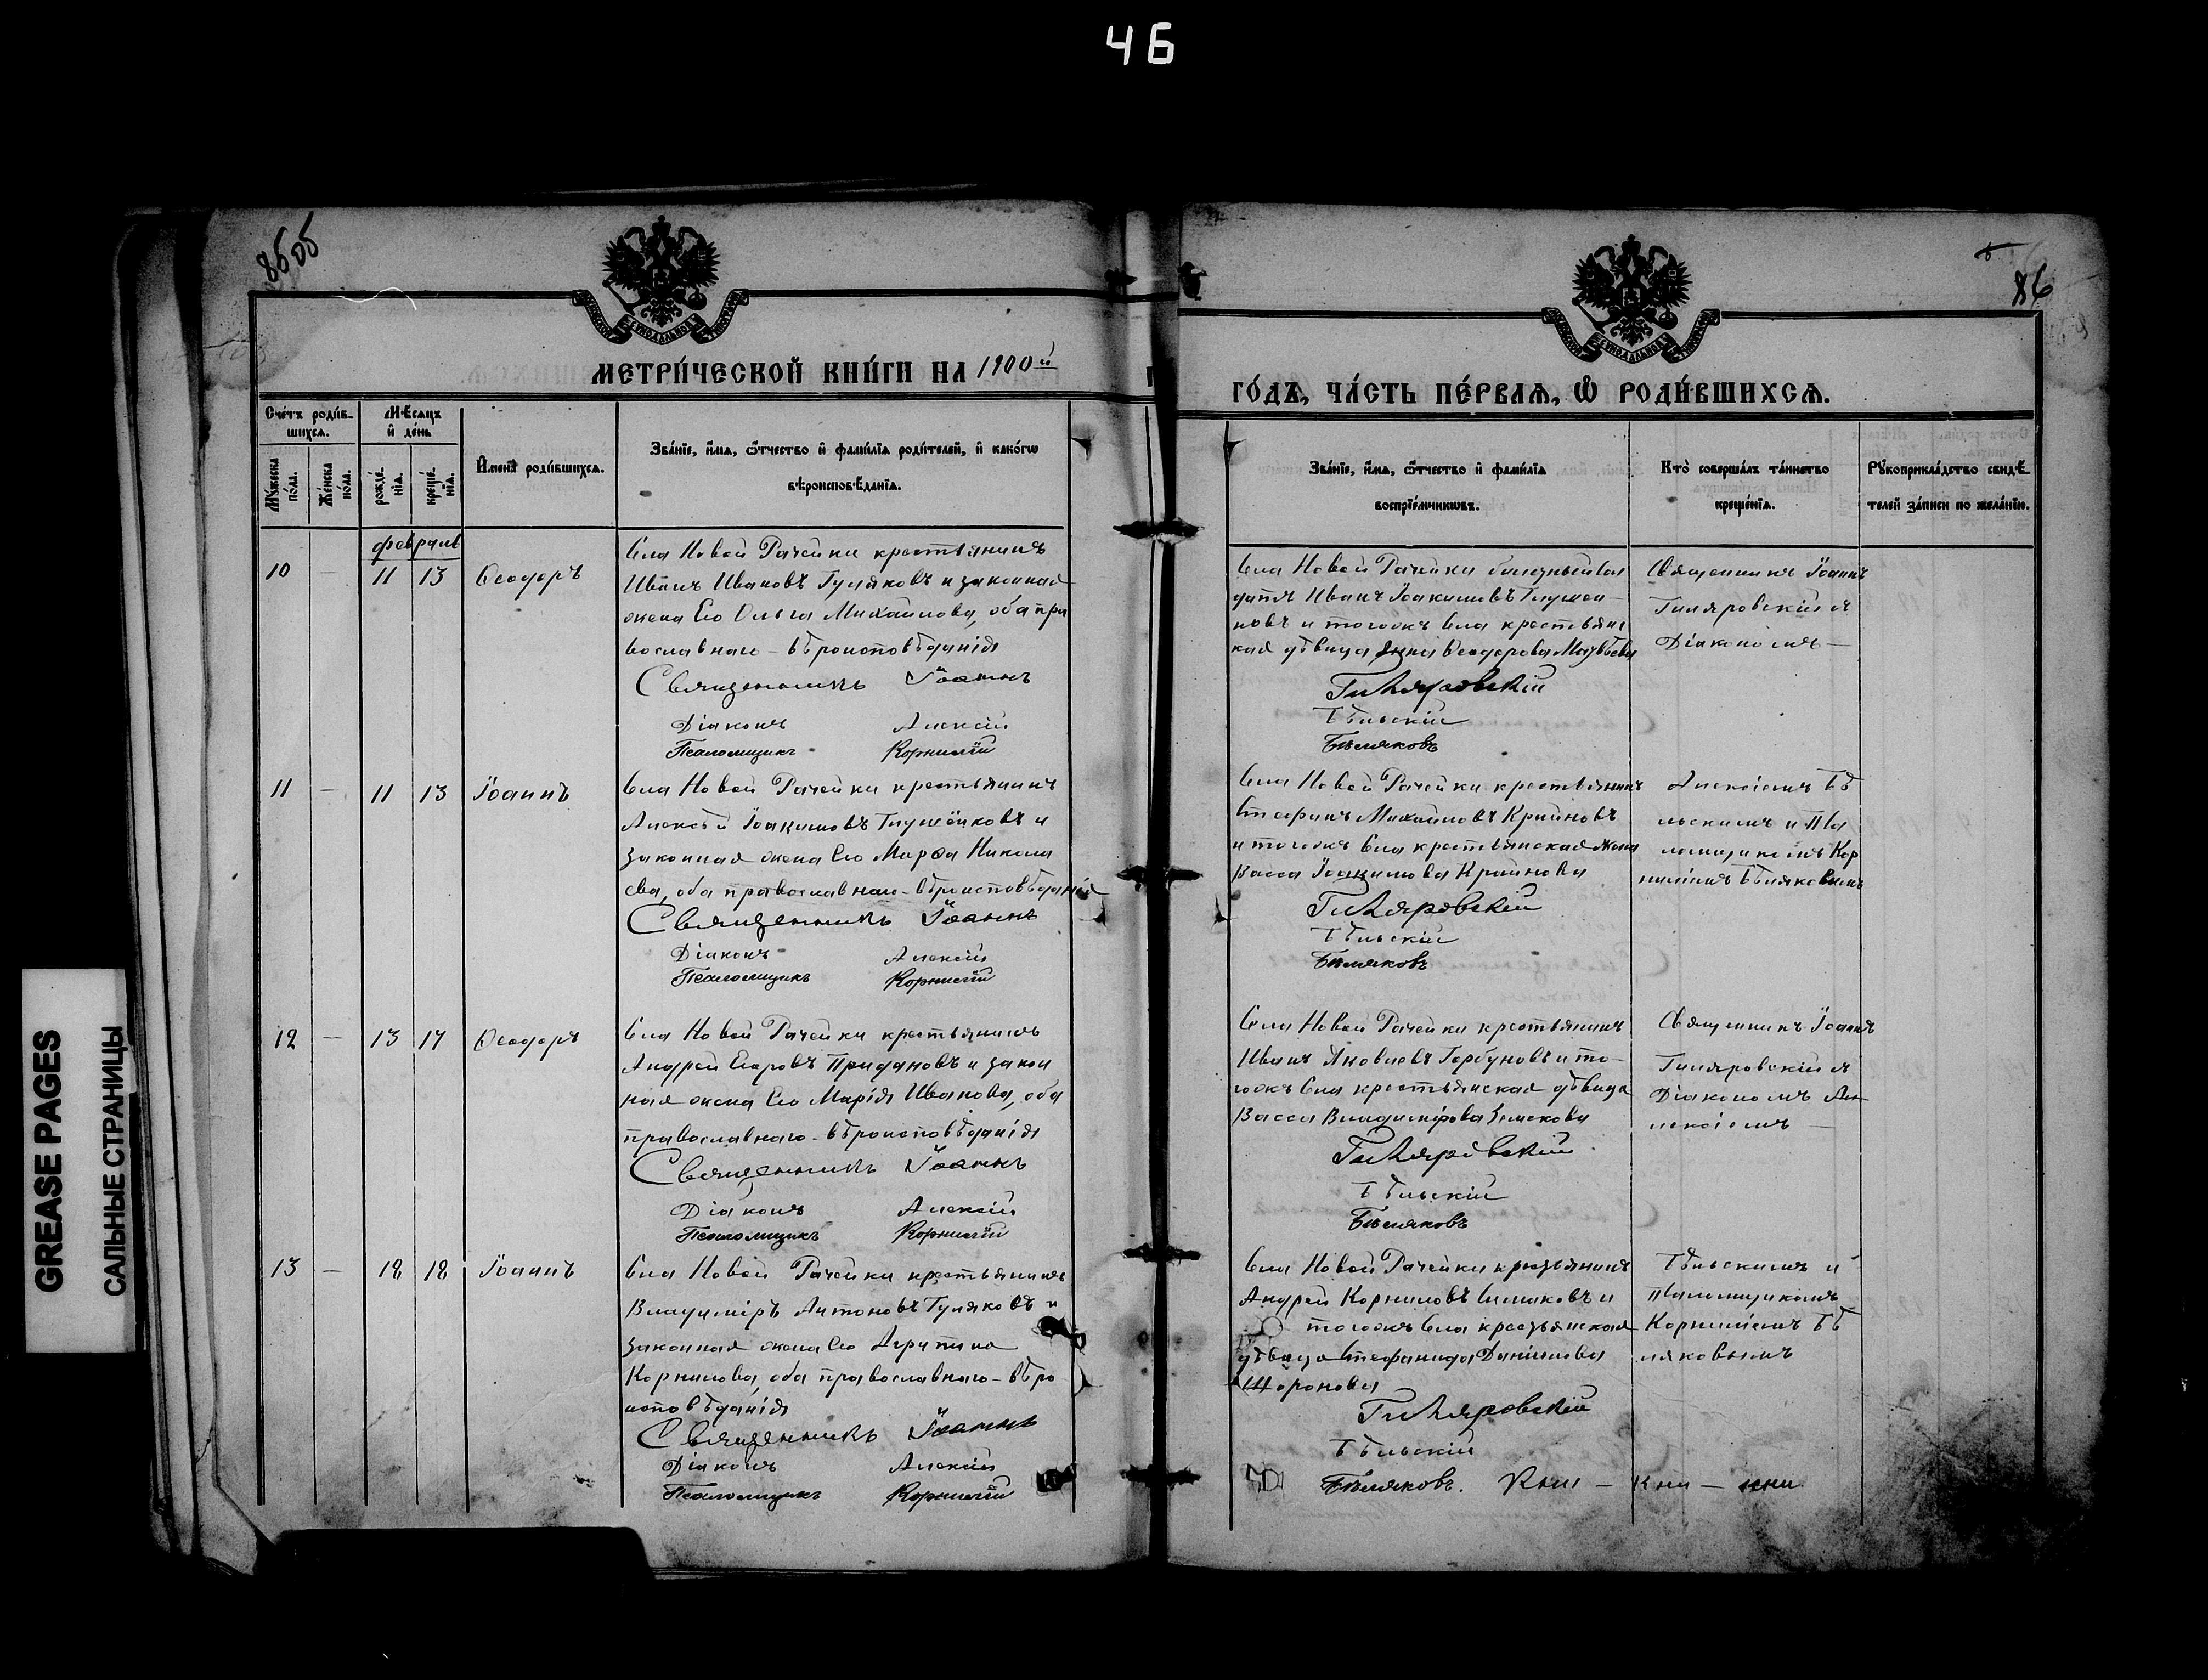 46
85 об
86
МЕТРИ́ЧЕСКОЙ КНИ́ГИ НА 1900й
ГО́ДЪ, ЧА́СТЬ ПЕ́РВАѦ, Ѿ РОДИ́ВШИХСѦ.
Сче́тъ роди́в-
шихсѧ.
Мѣсѧцъ
и҆ де́нь
Мꙋ́жеска
по́ла.
Же́нска
по́ла.
рожде́-
нїѧ.
креще́-
нїѧ.
И҆мена̀ роди́вшихсѧ.
Зва́нїе, и҆́мѧ, ѻ҆́тчество и҆ фами́лїѧ роди́телей, и҆ како́гѡ
вѣроисповѣ́данїѧ.
Зва́нїе, и҆́мѧ, ѻ҆́тчество и҆ фами́лїѧ
воспрїе́мникѡвъ.
Кто̀ соверша́лъ та́инство
креще́нїѧ.
Рꙋкоприкла́дство свидѣ́-
телей за́писи по жела́нїю.
февраль
10 — 11 13 Ѳеодоръ
Села Новой Рачейки крестьянинъ
Иванъ Ивановъ Гуляковъ и законная
жена его Ольга Михаилова, оба пра
вославнаго-вѣроисповѣданія
Священникъ Іоаннъ
Діаконъ Алексій
Псаломщикъ Корнилій
Села Новой Рачейки
датъ Иванъ Іоакимовъ Глушон-
ковъ и тогожъ села крестьянс
кая дѣвица Анна Ѳеодорова
Гиляровскій
Бѣльскій
Бѣляковъ
Священникъ Іоаннъ
Гиляровскій съ
Діакономъ —
11 — 11 13 Іоаннъ
Села Новой Рачейки крестьянинъ
Алексѣй Іоакимовъ Глушонковъ и
законная жена его Марѳа Никола
ева, оба православнаго-вѣроисповѣданія
Священникъ Іоаннъ
Діаконъ Алексій
Псаломщикъ Корнилій
Села Новой Рачейки крестьянинъ
Стефанъ Михайловъ Крайновъ
и тогожъ села крестьянская жена
Васса Іоакимова Крайнова
Гиляровскій
Бѣльскій
Бѣляковъ
Алексіемъ Бѣ
льскимъ и Пса
ломщикомъ Кор
ниліемъ Бѣляковымъ
12 — 13 14 Ѳеодоръ
Села Новой Рачейки крестьянинъ
Андрей Егоровъ Придановъ и закон
ная жена его Марія Иванова, оба
православнаго-вѣроисповѣданія
Священникъ Іоаннъ
Діаконъ Алексій
Псаломщикъ Корнилій
Села Новой Рачейки крестьянинъ
Иванъ Яковлевъ Горбуновъ и то-
гожъ села крестьянская дѣвица
Васса Владимірова Земскова
Гиляровскій
Бѣльскій
Бѣляковъ
Священникъ Іоаннъ
Гиляровскій съ
Діакономъ Ал
лексіемъ —
13 — 18 18 Іоаннъ
Села Новой Рачейки крестьянинъ
Владиміръ Антоновъ Гуляковъ и
законная жена его Агрипина
Корнилова, оба православнаго-вѣро
исповѣданія
Священникъ Іоаннъ
Діаконъ Алексій
Псаломщикъ Корнилій
Села Новой Рачейки крестьянинъ
Андрей Корниловъ Симаковъ и
тогожъ села крестьянская
дѣвица Стефанида Данилова
Шоронова
Гиляровскій
Бѣльскій
Бѣляковъ.
Бѣльскимъ и
Псаломщикомъ
Корниліемъ Бѣ
ляковымъ
GREASE PAGES
САЛЬНЫЕ СТРАНИЦЫ